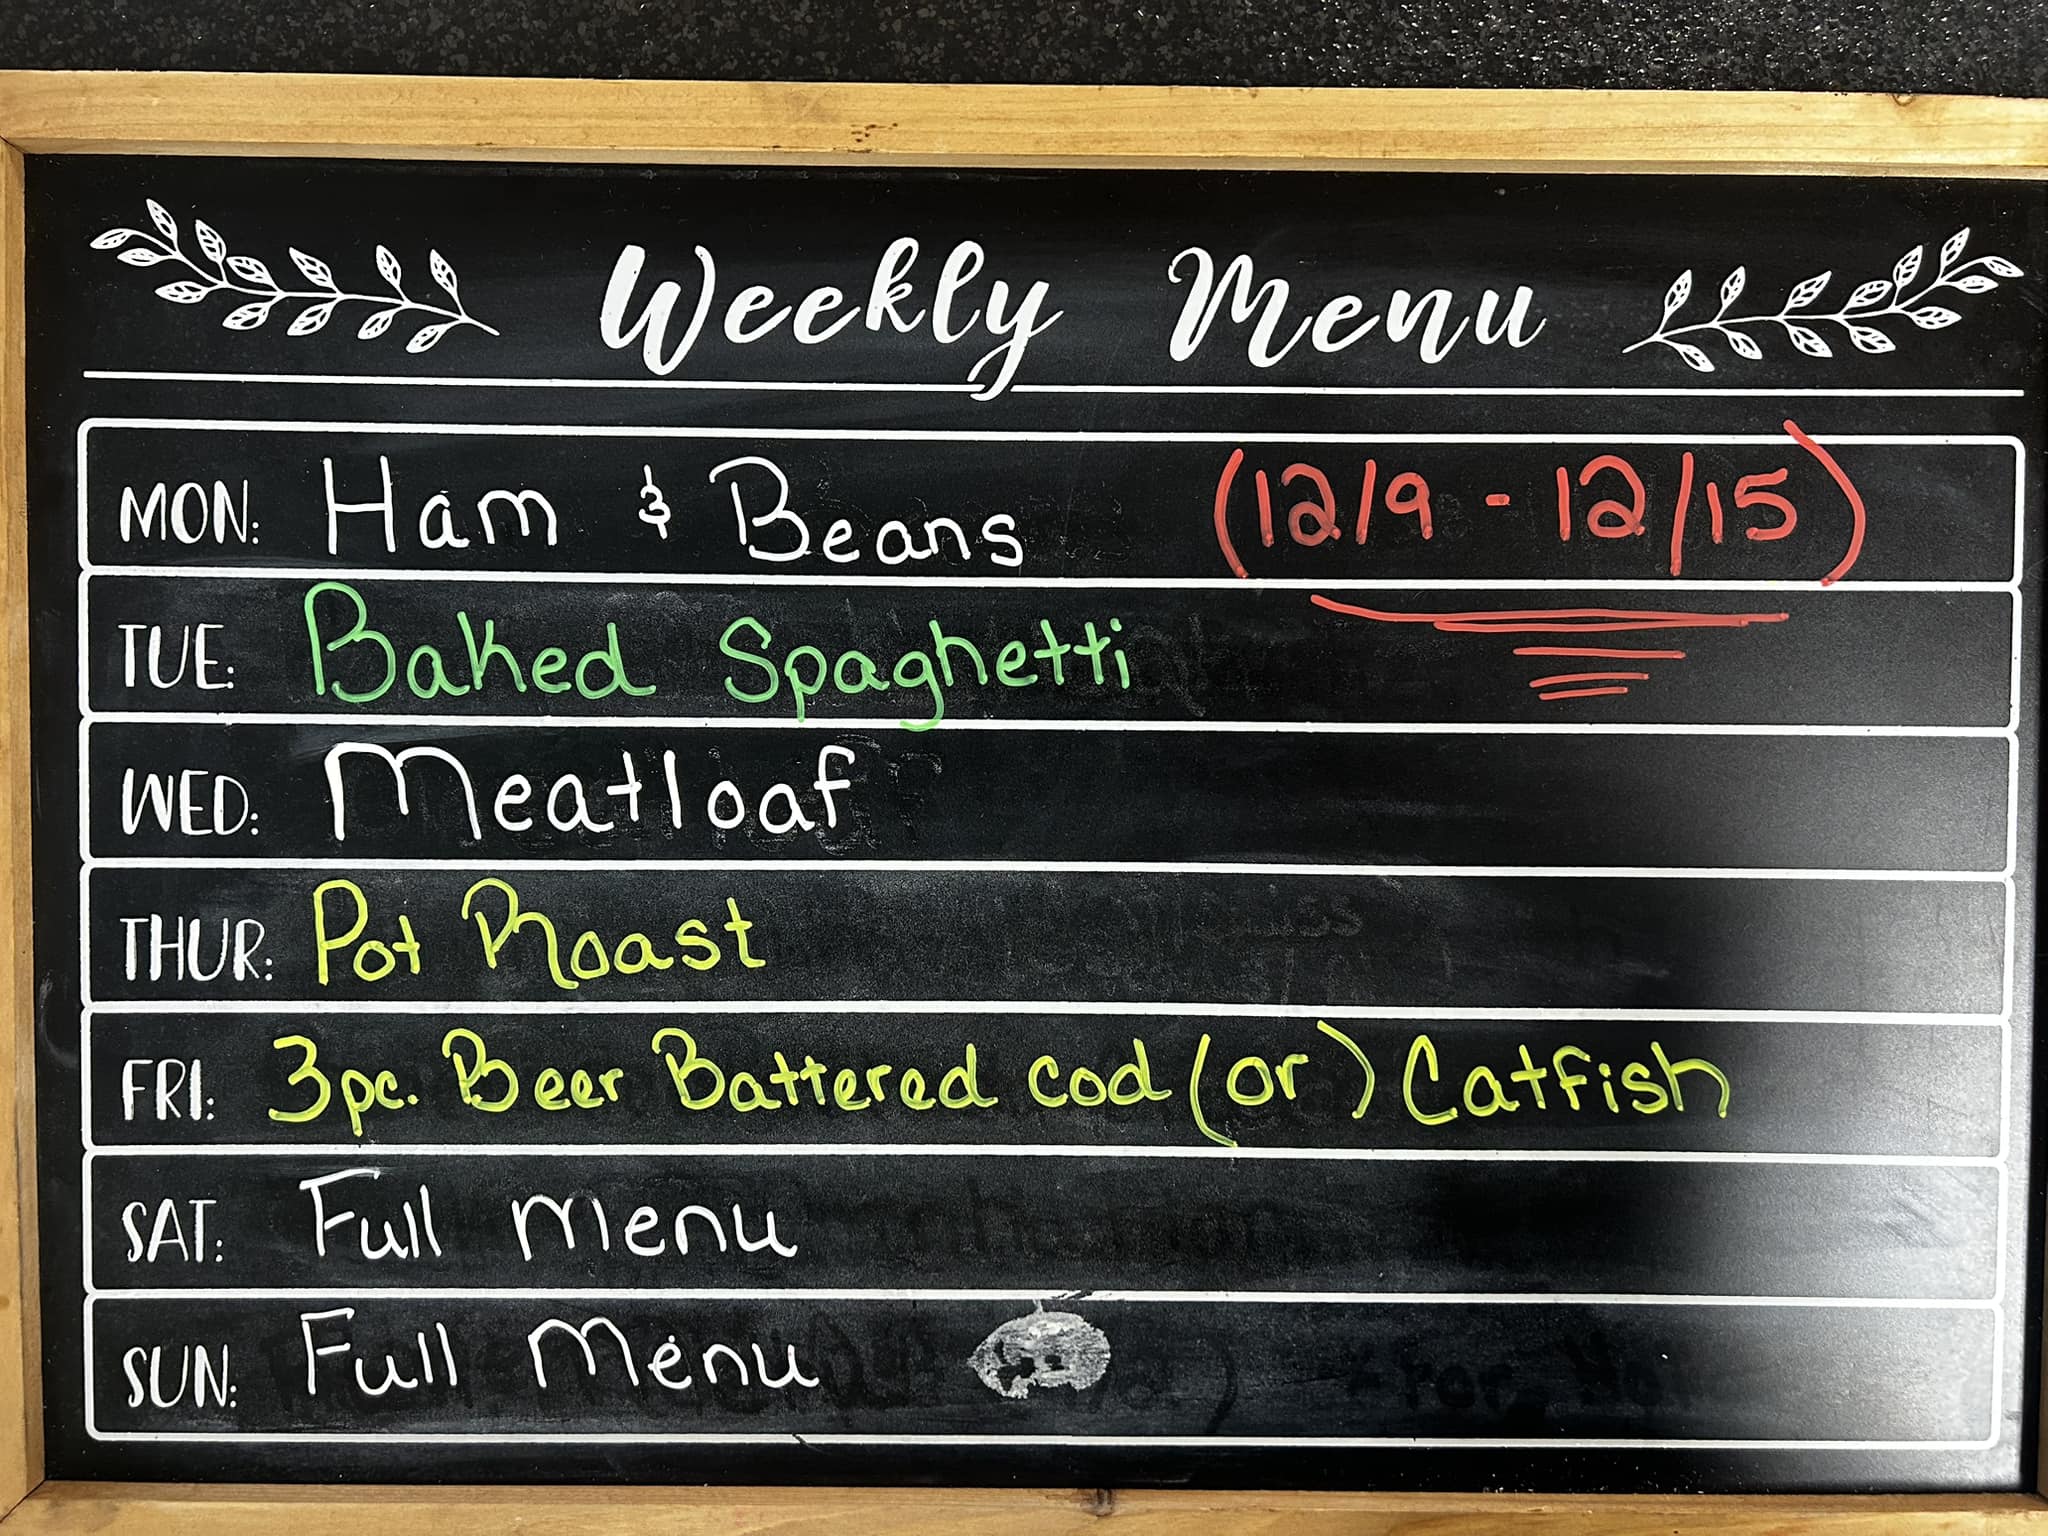 Weekly Menu
MON: Ham & Beans (12/9 - 12/15)
TUE: Baked Spaghetti
WED: Meatloaf
THUR: Pot Roast
FRI: 3pc. Beer Battered Cod (or) Catfish
SAT: Full Menu
SUN: Full Menu